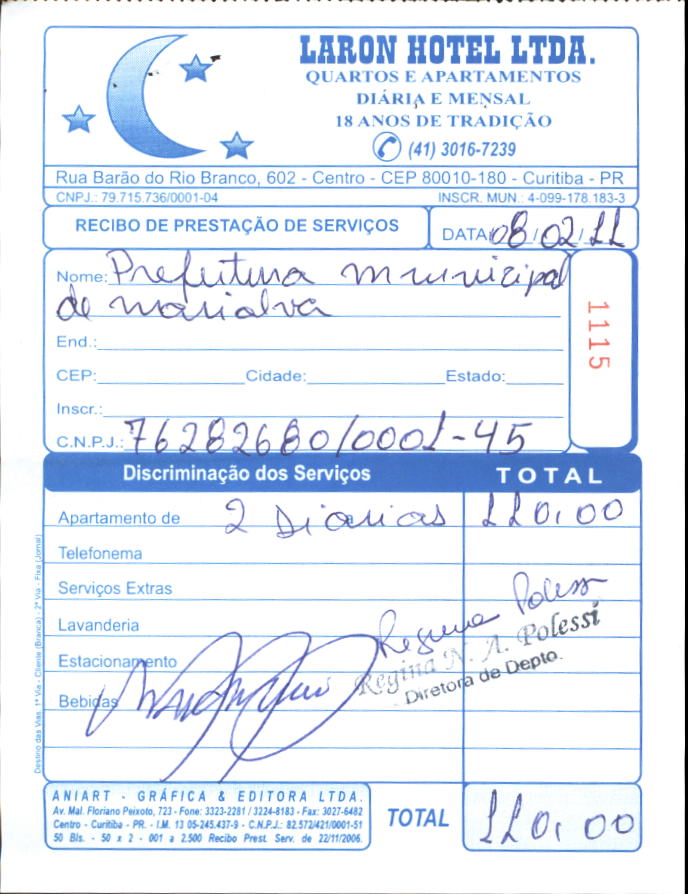 LARON HOTEL LTDA.
QUARTOS E APARTAMENTOS
DIÁRIA E MENSAL
18 ANOS DE TRADIÇÃO
(41) 3016-7239
Rua Barão do Rio Branco, 602 - Centro - CEP 80010-180 - Curitiba - PR
CNPJ.: 79.715.736/0001-04 INSCR. MUN.: 4-099-178.183-3
RECIBO DE PRESTAÇÃO DE SERVIÇOS
DATA 08/02/11
Nome: Prefeitura municipal
de marialva
1115
End.:
CEP: Cidade: Estado:
Inscr.:
C.N.P.J.: 76282680/0001-45
Discriminação dos Serviços TOTAL
Apartamento de 2 Diarias 110,00
Telefonema
Serviços Extras
Lavanderia
Estacionamento
Bebidas
Regina Polessi
Regina N. A. Polessi
Diretora de Depto.
Destino das Vias. 1ª Via - Cliente (Branca) - 2ª Via - Fixa (Jornal)
ANIART - GRÁFICA & EDITORA LTDA.
Av. Mal. Floriano Peixoto, 723 - Fone: 3323-2281 / 3224-8183 - Fax: 3027-6482
Centro - Curitiba - PR. - I.M. 13 05-245.437-9 - C.N.P.J.: 82.572/421/0001-51
50 Bls. - 50 x 2 - 001 a 2.500 Recibo Prest. Serv. de 22/11/2006.
TOTAL 110,00